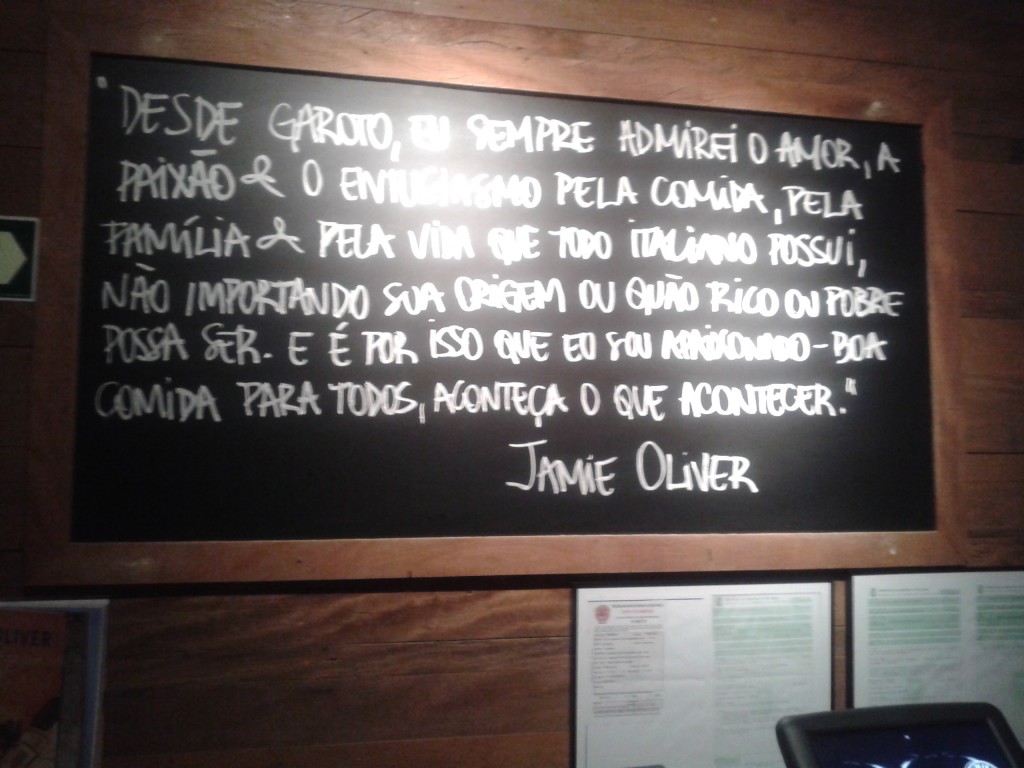 "DESDE GAROTO, EU SEMPRE ADMIREI O AMOR, A
PAIXÃO & O ENTUSIASMO PELA COMIDA, PELA
FAMÍLIA & PELA VIDA QUE TODO ITALIANO POSSUI,
NÃO IMPORTANDO SUA ORIGEM OU QUÃO RICO OU POBRE
POSSA SER. E É POR ISSO QUE EU SOU APAIXONADO - BOA
COMIDA PARA TODOS, ACONTEÇA O QUE ACONTECER."
JAMIE OLIVER
OLIVER